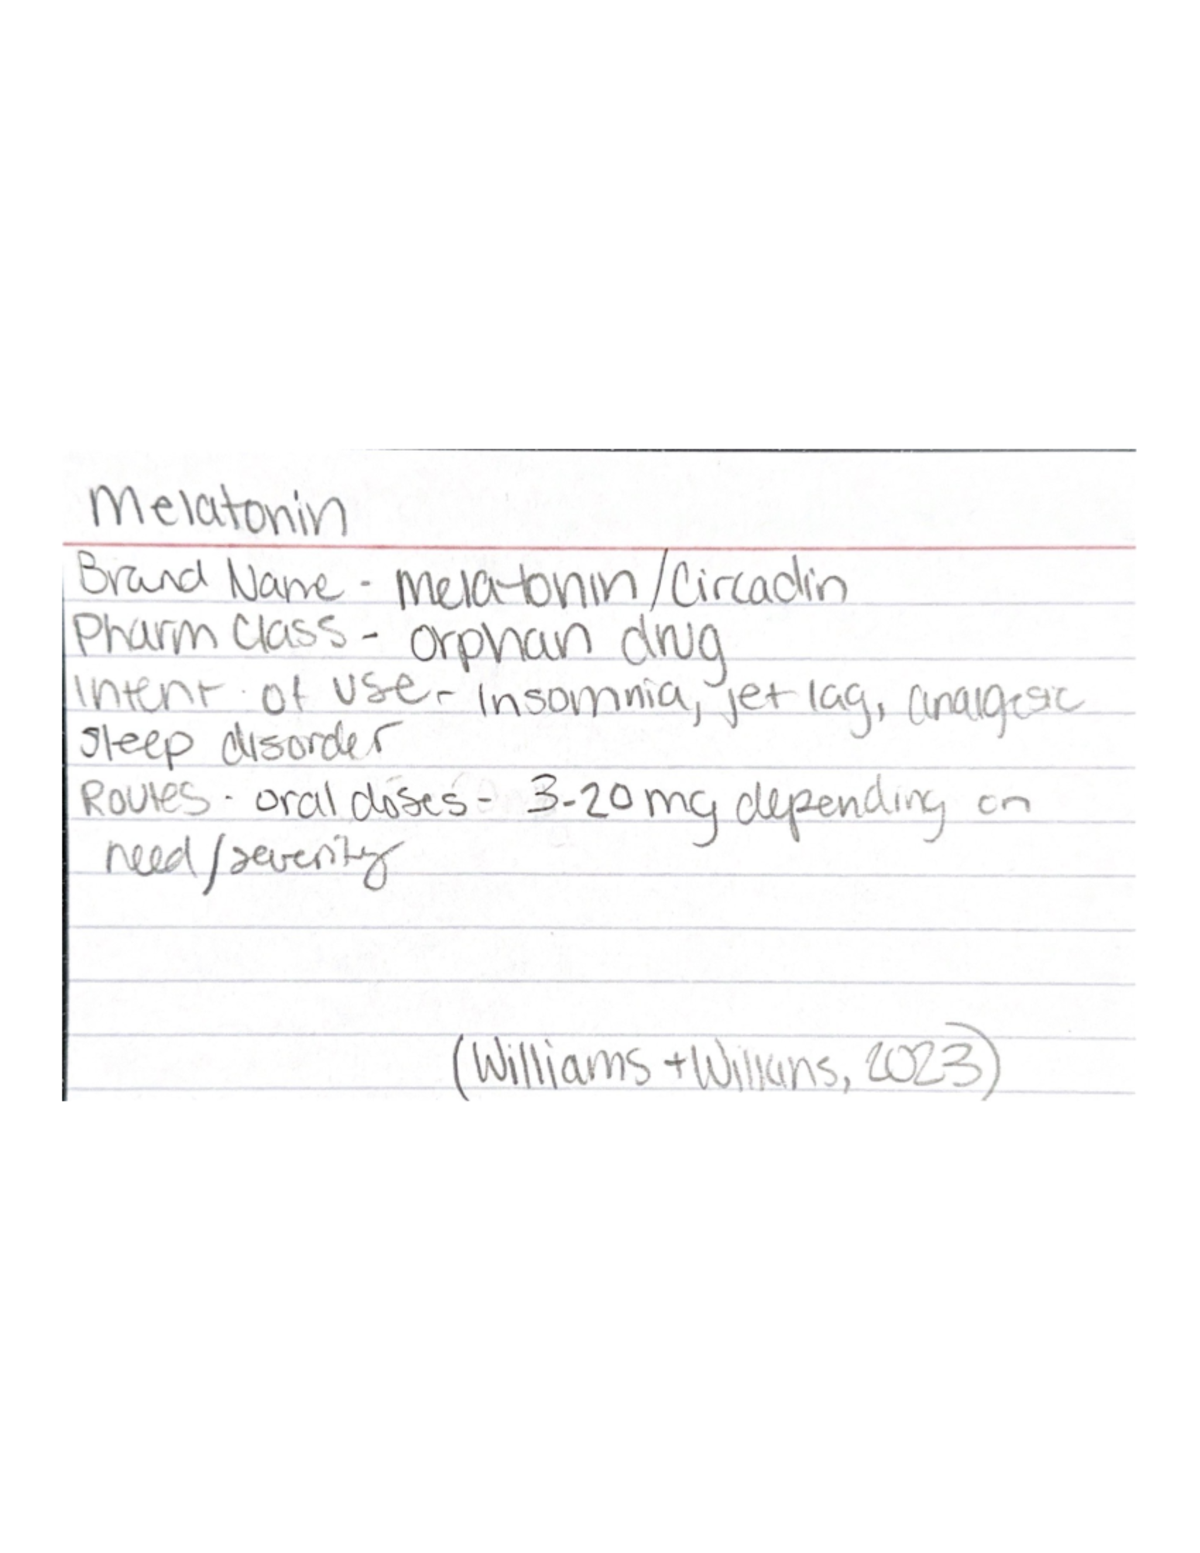 Melatonin
Brand Name - Melatonin/Circadin
Pharm Class - orphan drug
Intent of use - Insomnia, jet lag, analgesic
sleep disorder
Routes - oral doses - 3-20 mg depending on
need/severity
(Williams + Wilkins, 2023)